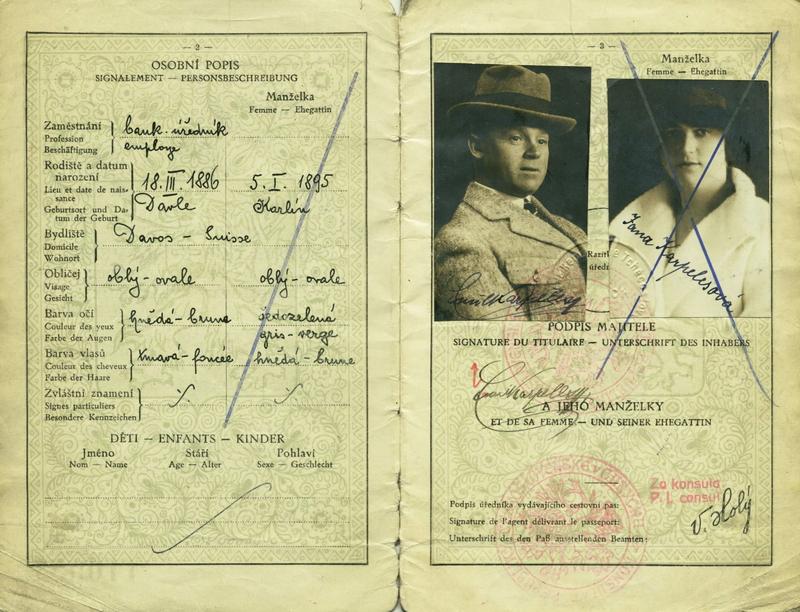 — 2 —
OSOBNÍ POPIS
SIGNALEMENT — PERSONSBESCHREIBUNG
Manželka
Femme — Ehegattin
Zaměstnání
Profession
Beschäftigung
bank. úředník
employe
Rodiště a datum
narození
Lieu et date de nais-
sance
Geburtsort und Da-
tum der Geburt
18. III. 1886 5. I. 1895
Davle Karlín
Bydliště
Domicile
Wohnort
Davos - Suisse
Obličej
Visage
Gesicht
oblý - ovale oblý - ovale
Barva očí
Couleur des yeux
Farbe der Augen
hnědá - brune šedozelená
gris - verge
Barva vlasů
Couleur des cheveux
Farbe der Haare
tmavá - foncée hnědá - brune
Zvláštní znamení
Signes particuliers
Besondere Kennzeichen
DĚTI — ENFANTS — KINDER
Jméno Stáří Pohlaví
Nom — Name Age — Alter Sexe — Geschlecht
— 3 —
Manželka
Femme — Ehegattin
Jana Karpelesova
PODPIS MAJITELE
SIGNATURE DU TITULAIRE — UNTERSCHRIFT DES INHABERS
A JEHO MANŽELKY
ET DE SA FEMME — UND SEINER EHEGATTIN
Za konsula
P. l. consul
V. Holý
Podpis úředníka vydávajícího cestovní pas:
Signature de l'agent délivrant le passeport:
Unterschrift des den Paß ausstellenden Beamten: